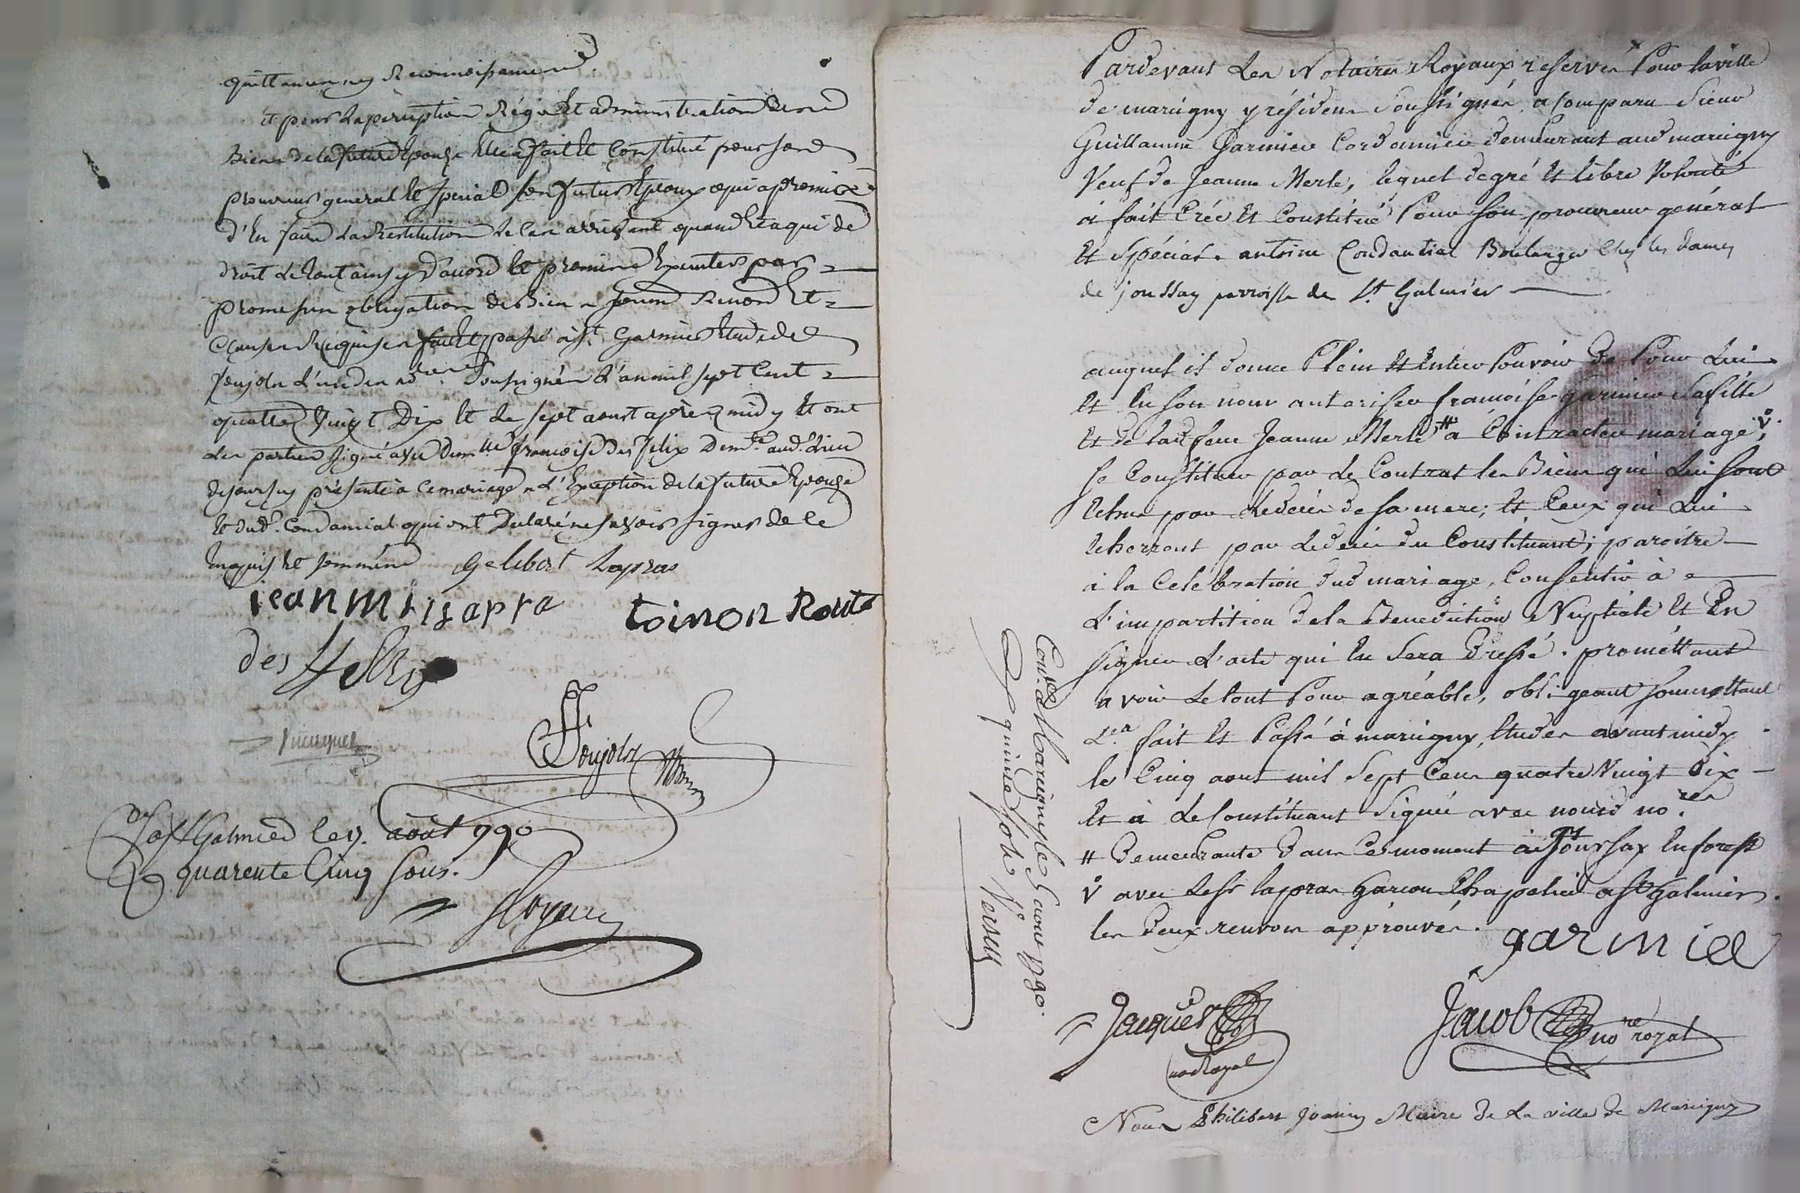 quittances et Reconnoissances
et pour la perception Régie Et administration des
Biens de la future Epouse Elle a fait Et Constitué pour son
procureur général Et spécial son futur Epoux qui a promis
d'En faire la Restitution le cas arrivant quand Et a qui de
droit le tout ainsy d'acord Et promis Executer par
promesse obligation de Biens Renon Et
Clauses Requises fait Et passé à St Galmier Etude de
Joujoln L'un des no.res soussignés L'an mil sept Cent
quatre Vingt Dix Et Le sept aoust après midy Et ont
Les parties signé avec Dem.lle françoise des Felix Dem.te aud. Lieu
présente à Ce mariage a L'Exception de la future Epouse
Et dud. Condamial qui ont Déclaré ne savoir signer de Ce
Enquis Et sommés Gelibert Lapras
jean mi lapra toinon Route
des Felix
Jacquet
Joujoln
Con.lé à St Galmier le 7. août 1790
quarente Cinq sous.
Royer
Pardevant Les Notaires Royaux réservés Pour la ville
de marcigny y résidens Soussignés, a Comparu Sieur
Guillaume Garnier Cordonnier demeurant aud marcigny
Veuf de Jeanne Merle, lequel de gré Et libre Volonté
à fait Crée Et Constitué Pour son procureur général
Et Spécial antoine Condantial Boulanger Chez les dames
de joursay parroisse de St Galmier
auquel il donne Plein Et Entier Pouvoir de Pour Lui
Et En son nom autoriser françoise Garnier Sa fille
Et de laditte feue Jeanne Merle # à Contracter mariage v̊,
se Constituer par le Contrat les Biens qui Lui sont
Echus par le décès de sa mere, Et Ceux qui Lui
Echerront par le décès du Constituant; paroitre
à la Celebration dud mariage, Consentir à
L'impartition de la Bénédiction Nuptiale Et En
signer L'acte qui En Sera Dressé. prométtant
avoir le tout Pour agréable, obligeant soumettant
L.ra fait Et Passé à marcigny, Etudes avant midy
le Cinq aout mil Sept Cens quatre Vingt Dix
Et à le Constituant Signé avec nousd no.res
# Demeurante Dans Ce moment à Joursay En forest
v̊ avec le Sr lapras Garcon Chapelier a St Galmier.
les Deux renvois approuvés.
garnier
Jacquet
no Royal
Jacob
no.re royal
Con.lé à Marcigny le 5 aout 1790.
Rs quinze sols Verseu
Nous Philibert Joanin Maire de La ville de Marcigny